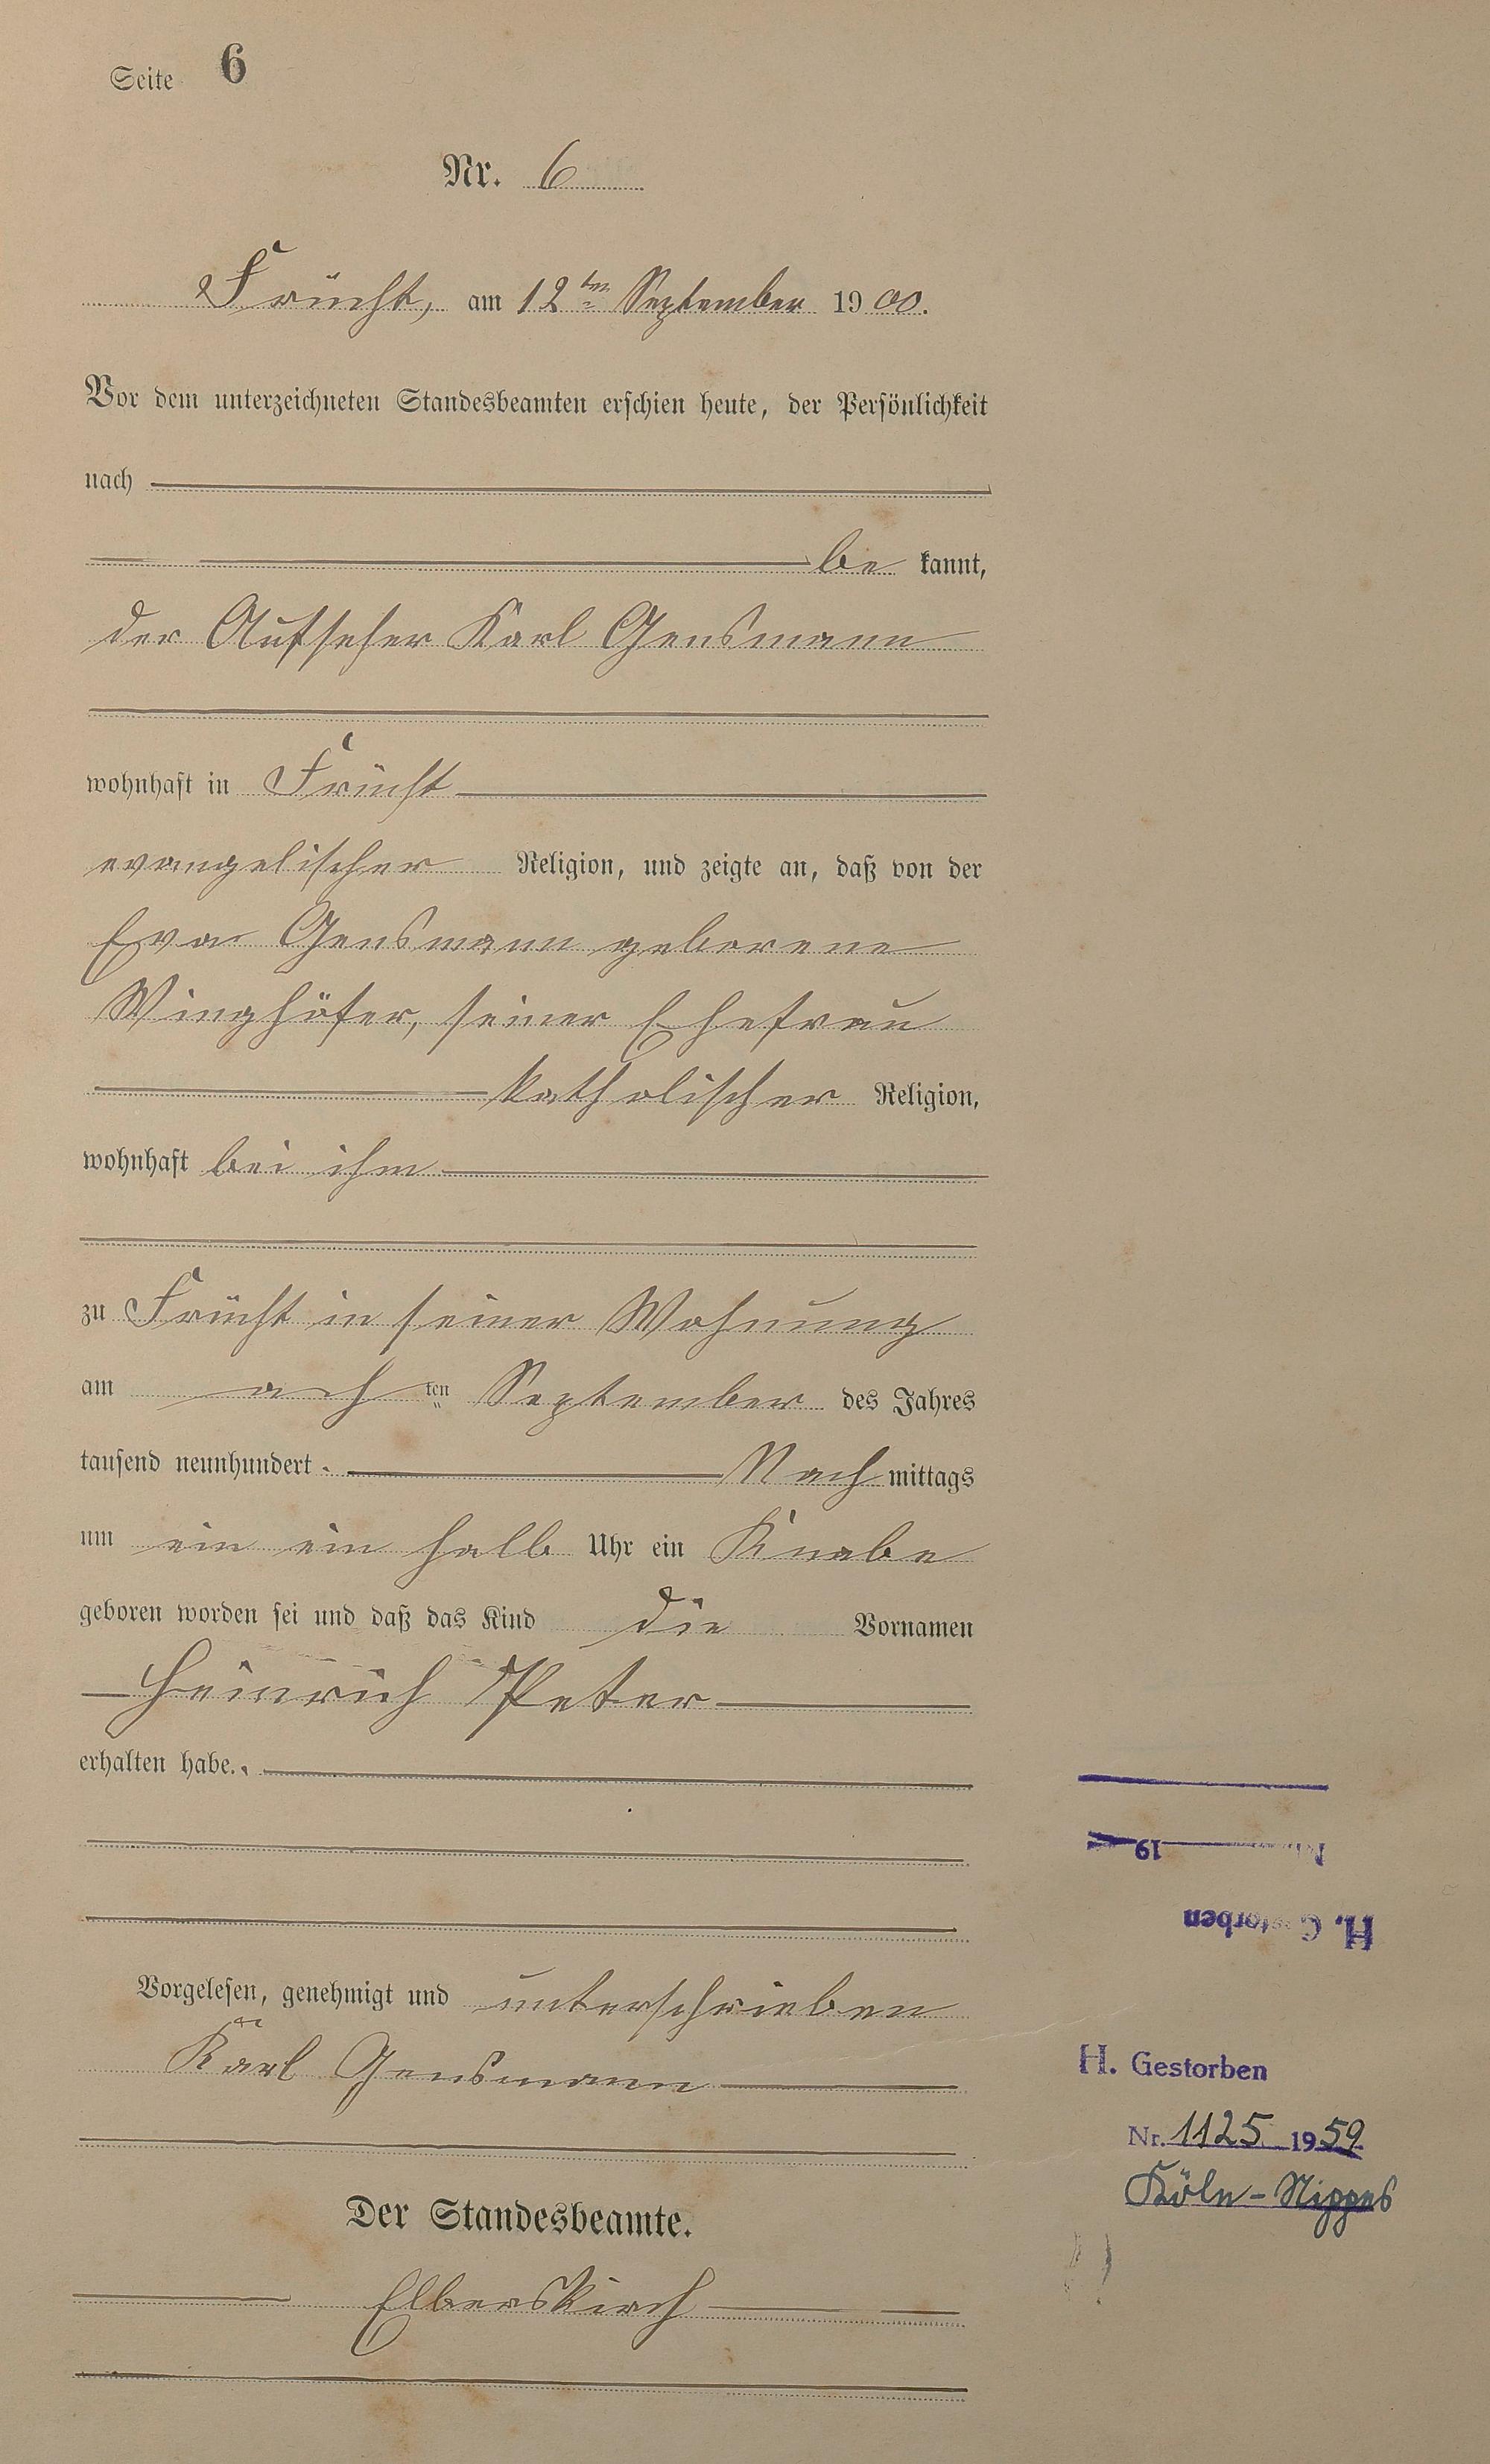 Seite 6
Nr. 6
Frücht, am 12ten September 1900.
Vor dem unterzeichneten Standesbeamten erschien heute, der Persönlichkeit
nach
be kannt,
der Aufseher Karl Gensmann
wohnhaft in Frücht
evangelischer Religion, und zeigte an, daß von der
Eva Gensmann geborene
Winghöfer, seiner Ehefrau
katholischer Religion,
wohnhaft bei ihm
zu Frücht in seiner Wohnung
am ach ten September des Jahres
tausend neunhundert Nach mittags
um ein ein halb Uhr ein Knabe
geboren worden sei und daß das Kind die Vornamen
Heinrich Peter
erhalten habe.
19
H. Gestorben
Vorgelesen, genehmigt und unterschrieben
Karl Gensmann
H. Gestorben
Nr. 1125 1959
Köln-Nippes
Der Standesbeamte.
Elberskirch